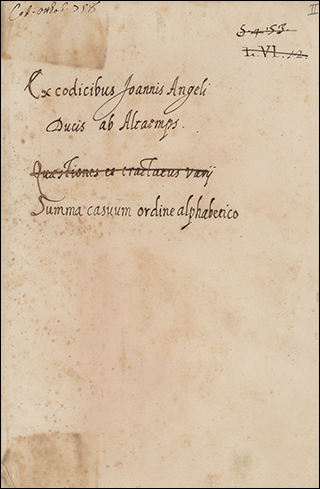 Cod. Ottob. 758
II
5.4.53.
I.VI.12.
Ex codicibus Joannis Angeli
Ducis ab Altaemps.
Quæstiones et tractatus varij
Summa casuum ordine alphabetico